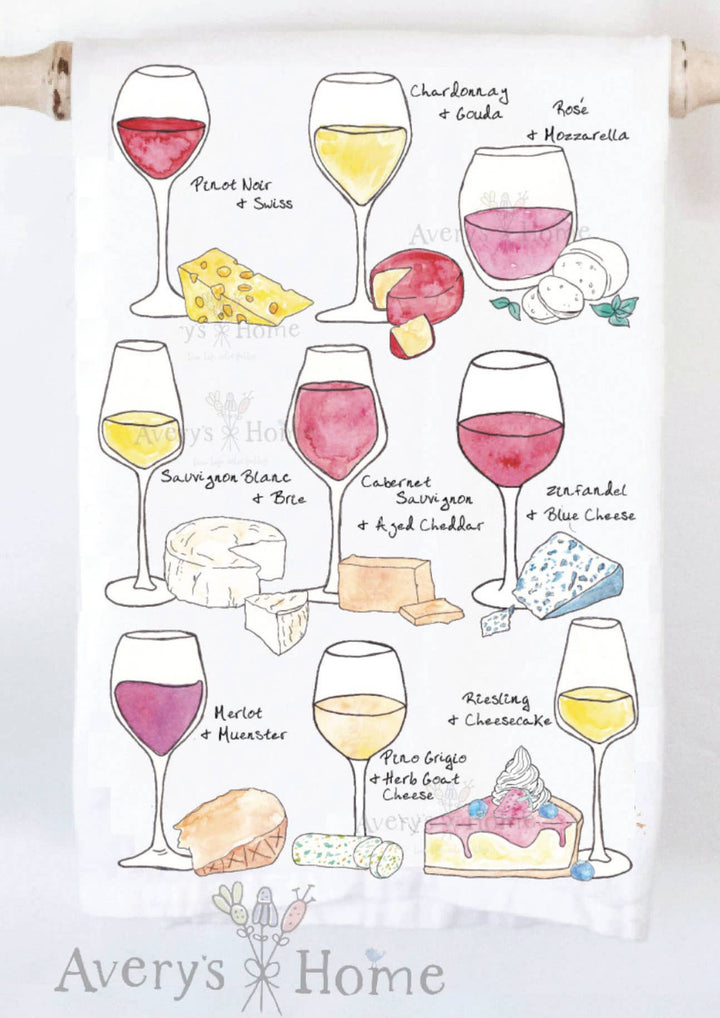 Pinot Noir
& Swiss
Chardonnay
& Gouda
Rosé
& Mozzarella
Avery's Home
Avery's Home
Sauvignon Blanc
& Brie
Cabernet
Sauvignon
& Aged Cheddar
Zinfandel
& Blue Cheese
Avery's Home
Merlot
& Muenster
Pino Grigio
& Herb Goat
Cheese
Riesling
& Cheesecake
Avery's Home